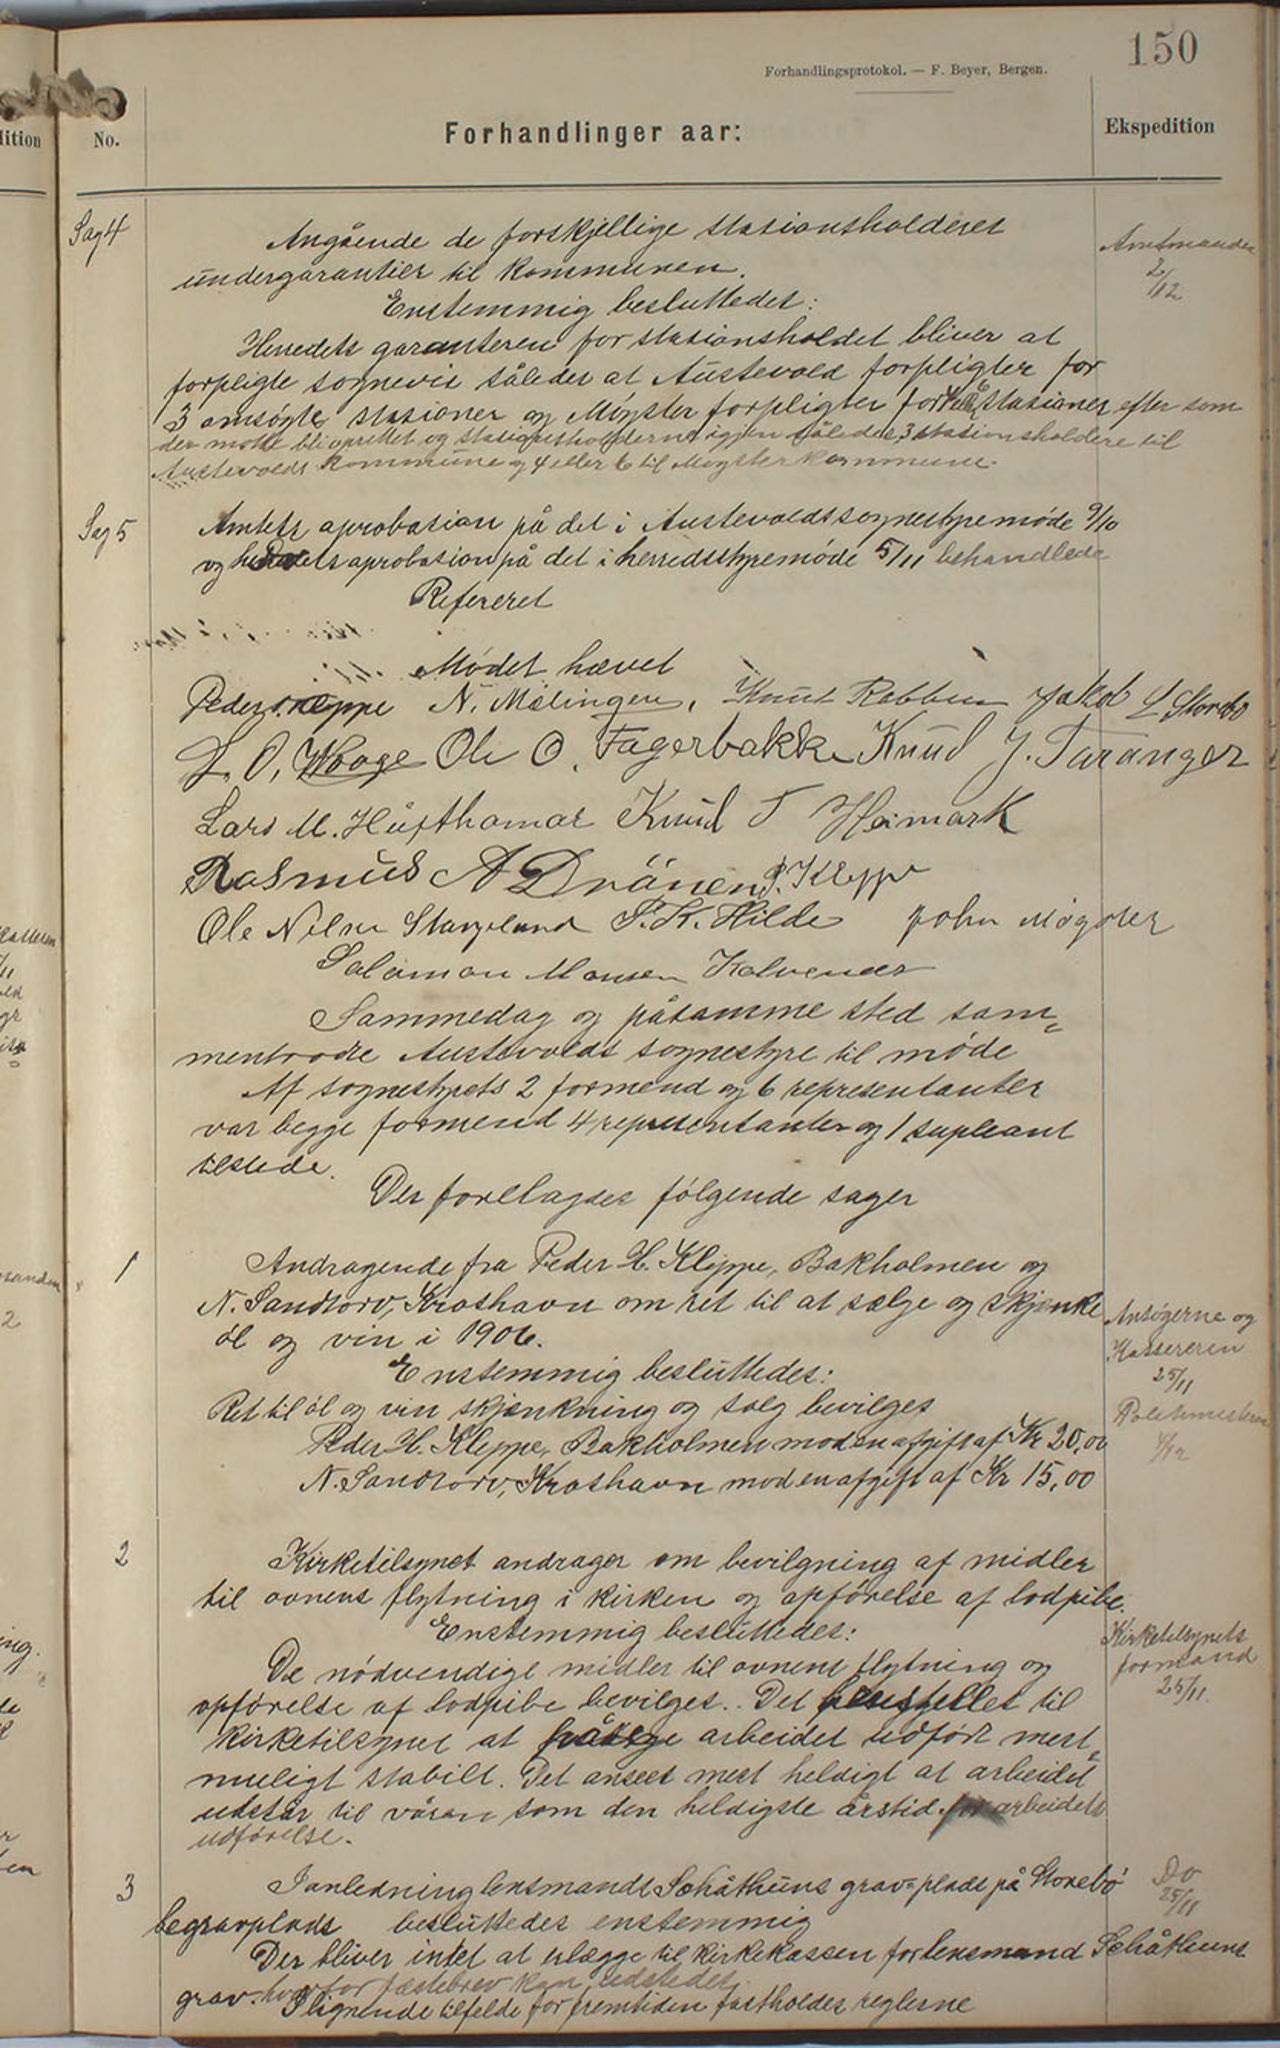 150
Forhandlingsprotokol. — F. Beyer, Bergen.
No.
Forhandlinger aar:
Ekspedition
Sag 4
Angående de forskjellige stasionsholderes
undergarantier til kommunen.
Amtmanden
2/12
Enstemmig besluttedes:
Herredets garanteren for stasionsholdet bliver at
forpligte sognevis således at Austevold forpligter for
3 ansøgte stasioner og Møgster forpligter for stasioner efter som
der måtte bli oprettet og stasionsholderne igjen således 3 stasionsholdere til
Austevolds kommune og 4 eller 6 til Møgster kommune.
Sag 5
Amtets aprobasion på det i Austevolds sognestyremøde 9/10
og aprobasion på det i herredsstyremøde 5/11 behandlede
Refereret
Mødet hævet
Peder Kleppe N. Mølingen, Knut Rabben Jakob L Storebø
L. O. Waage Ole O. Fagerbakke Knud J. Taranger
Lars M. Hufthamar Knud T Heimark
Rasmus A Drönen P. Kleppe
Ole Nilsen Stangeland P. K. Hilde John Møgster
Salamon Monsen Kalvenes
Sammedag og påsamme sted sam=
mentrådte Austevolds sognestyre til møde
Af sognestyrets 2 formend og 6 representanter
var begge formend 4 representanter og 1 supleant
tilstede.
Der forelagdes følgende sager
1
Andragende fra Peder H. Kleppe, Bakholmen og
N. Sandtorv, Kroshavn om ret til at sælge og skjænke
øl og vin i 1906.
Ansøgerne og
Kassereren
25/11
Politimesteren
4/12
Enstemmig besluttedes:
Ret til øl og vin skjænkning og salg bevilges
Peder H. Kleppe, Bakholmen mod en afgift af Kr 20,00
N. Sandtorv, Kroshavn mod en afgift af Kr 15,00
2
Kirketilsynet andrager om bevilgning af midler
til ovnens flytning i kirken og opførelse af lodpibe.
Enstemmig besluttedes:
Kirketilsynets
formand
25/11.
De nødvendige midler til ovnens flytning og
opførelse af lodpibe bevilges. Det henstilles til
kirketilsynet at arbeidet udført mest
muligt stabilt. Det ansees mest heldigt at arbeidet
udstår til våren som den heldigste årstid for arbeidets
udførelse.
3
I anledning lensmand Schåthuns grav=plads på Storebø
begravplads besluttedes enstemmig
Do
25/11
Der bliver intet at erlægge til kirkekassen for lensmand Schåthuns
grav. hvorfor fæstebrev kan udstedes.
I lignende tilfelde for fremtiden fastholdes reglerne